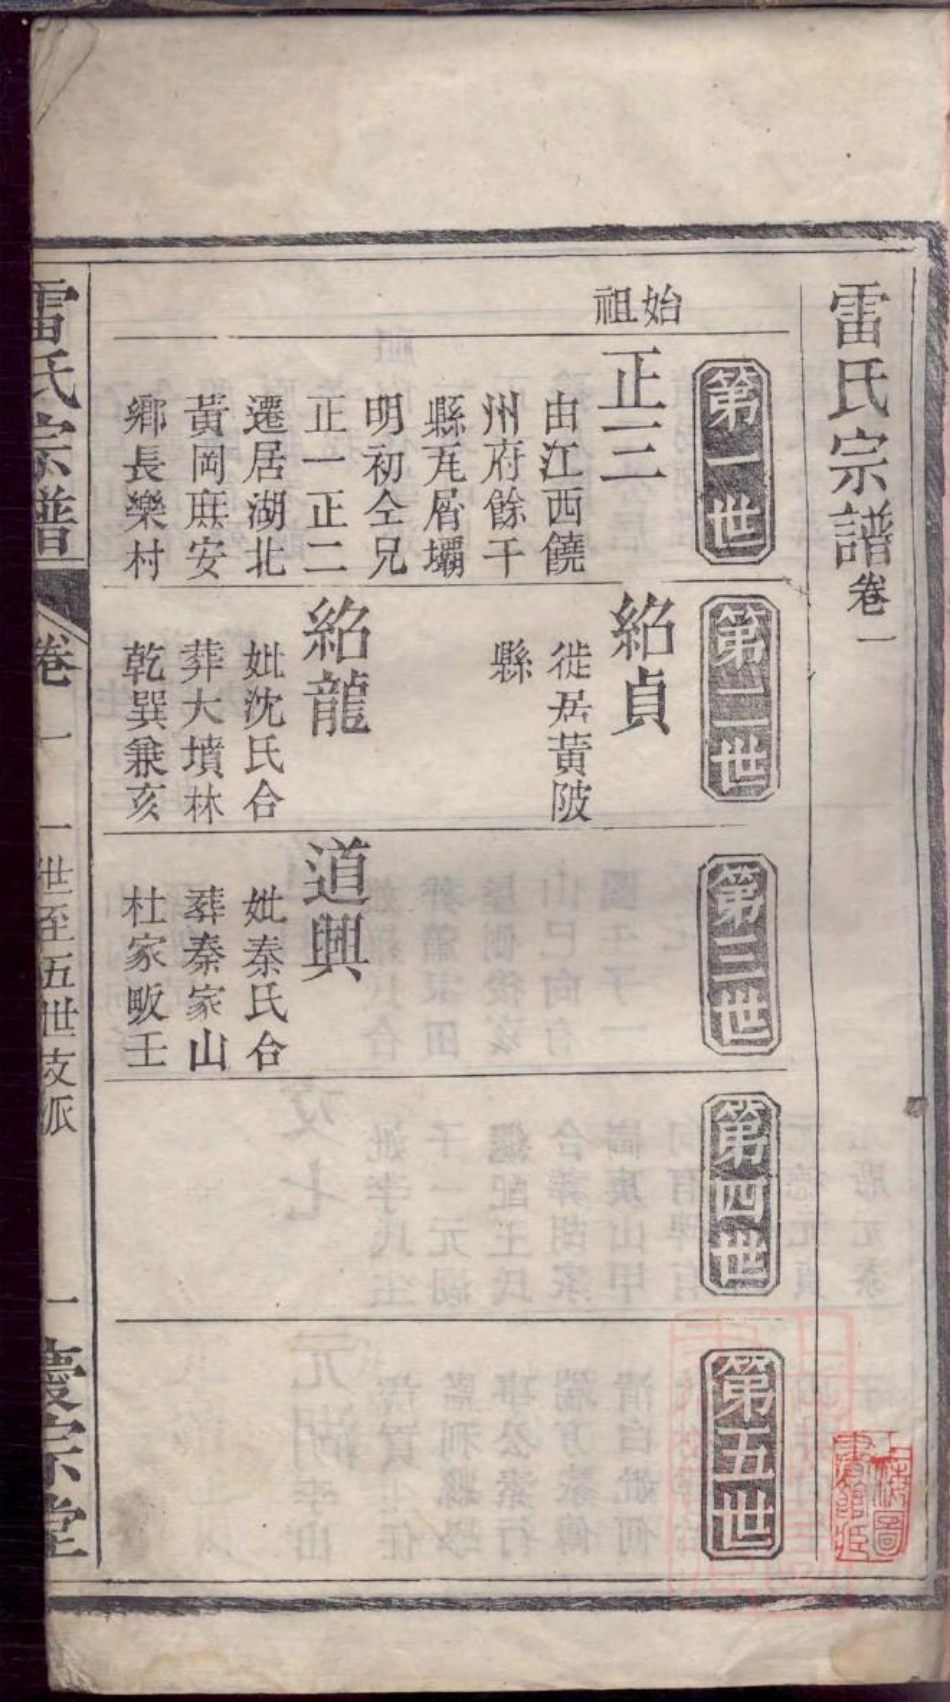 雷氏宗譜卷一
第一世
第二世
第三世
第四世
第五世
始祖
正三
由江西饒
州府餘干
縣瓦屑壩
明初仝兄
正一正二
遷居湖北
黃岡庥安
鄉長樂村
紹貞
徙居黃陂
縣
紹龍
妣沈氏合
葬大墳林
乾巽兼亥
道興
妣秦氏合
葬秦家山
杜家畈壬
雷氏宗譜
卷一
一世至五世支派
一
慶宗堂